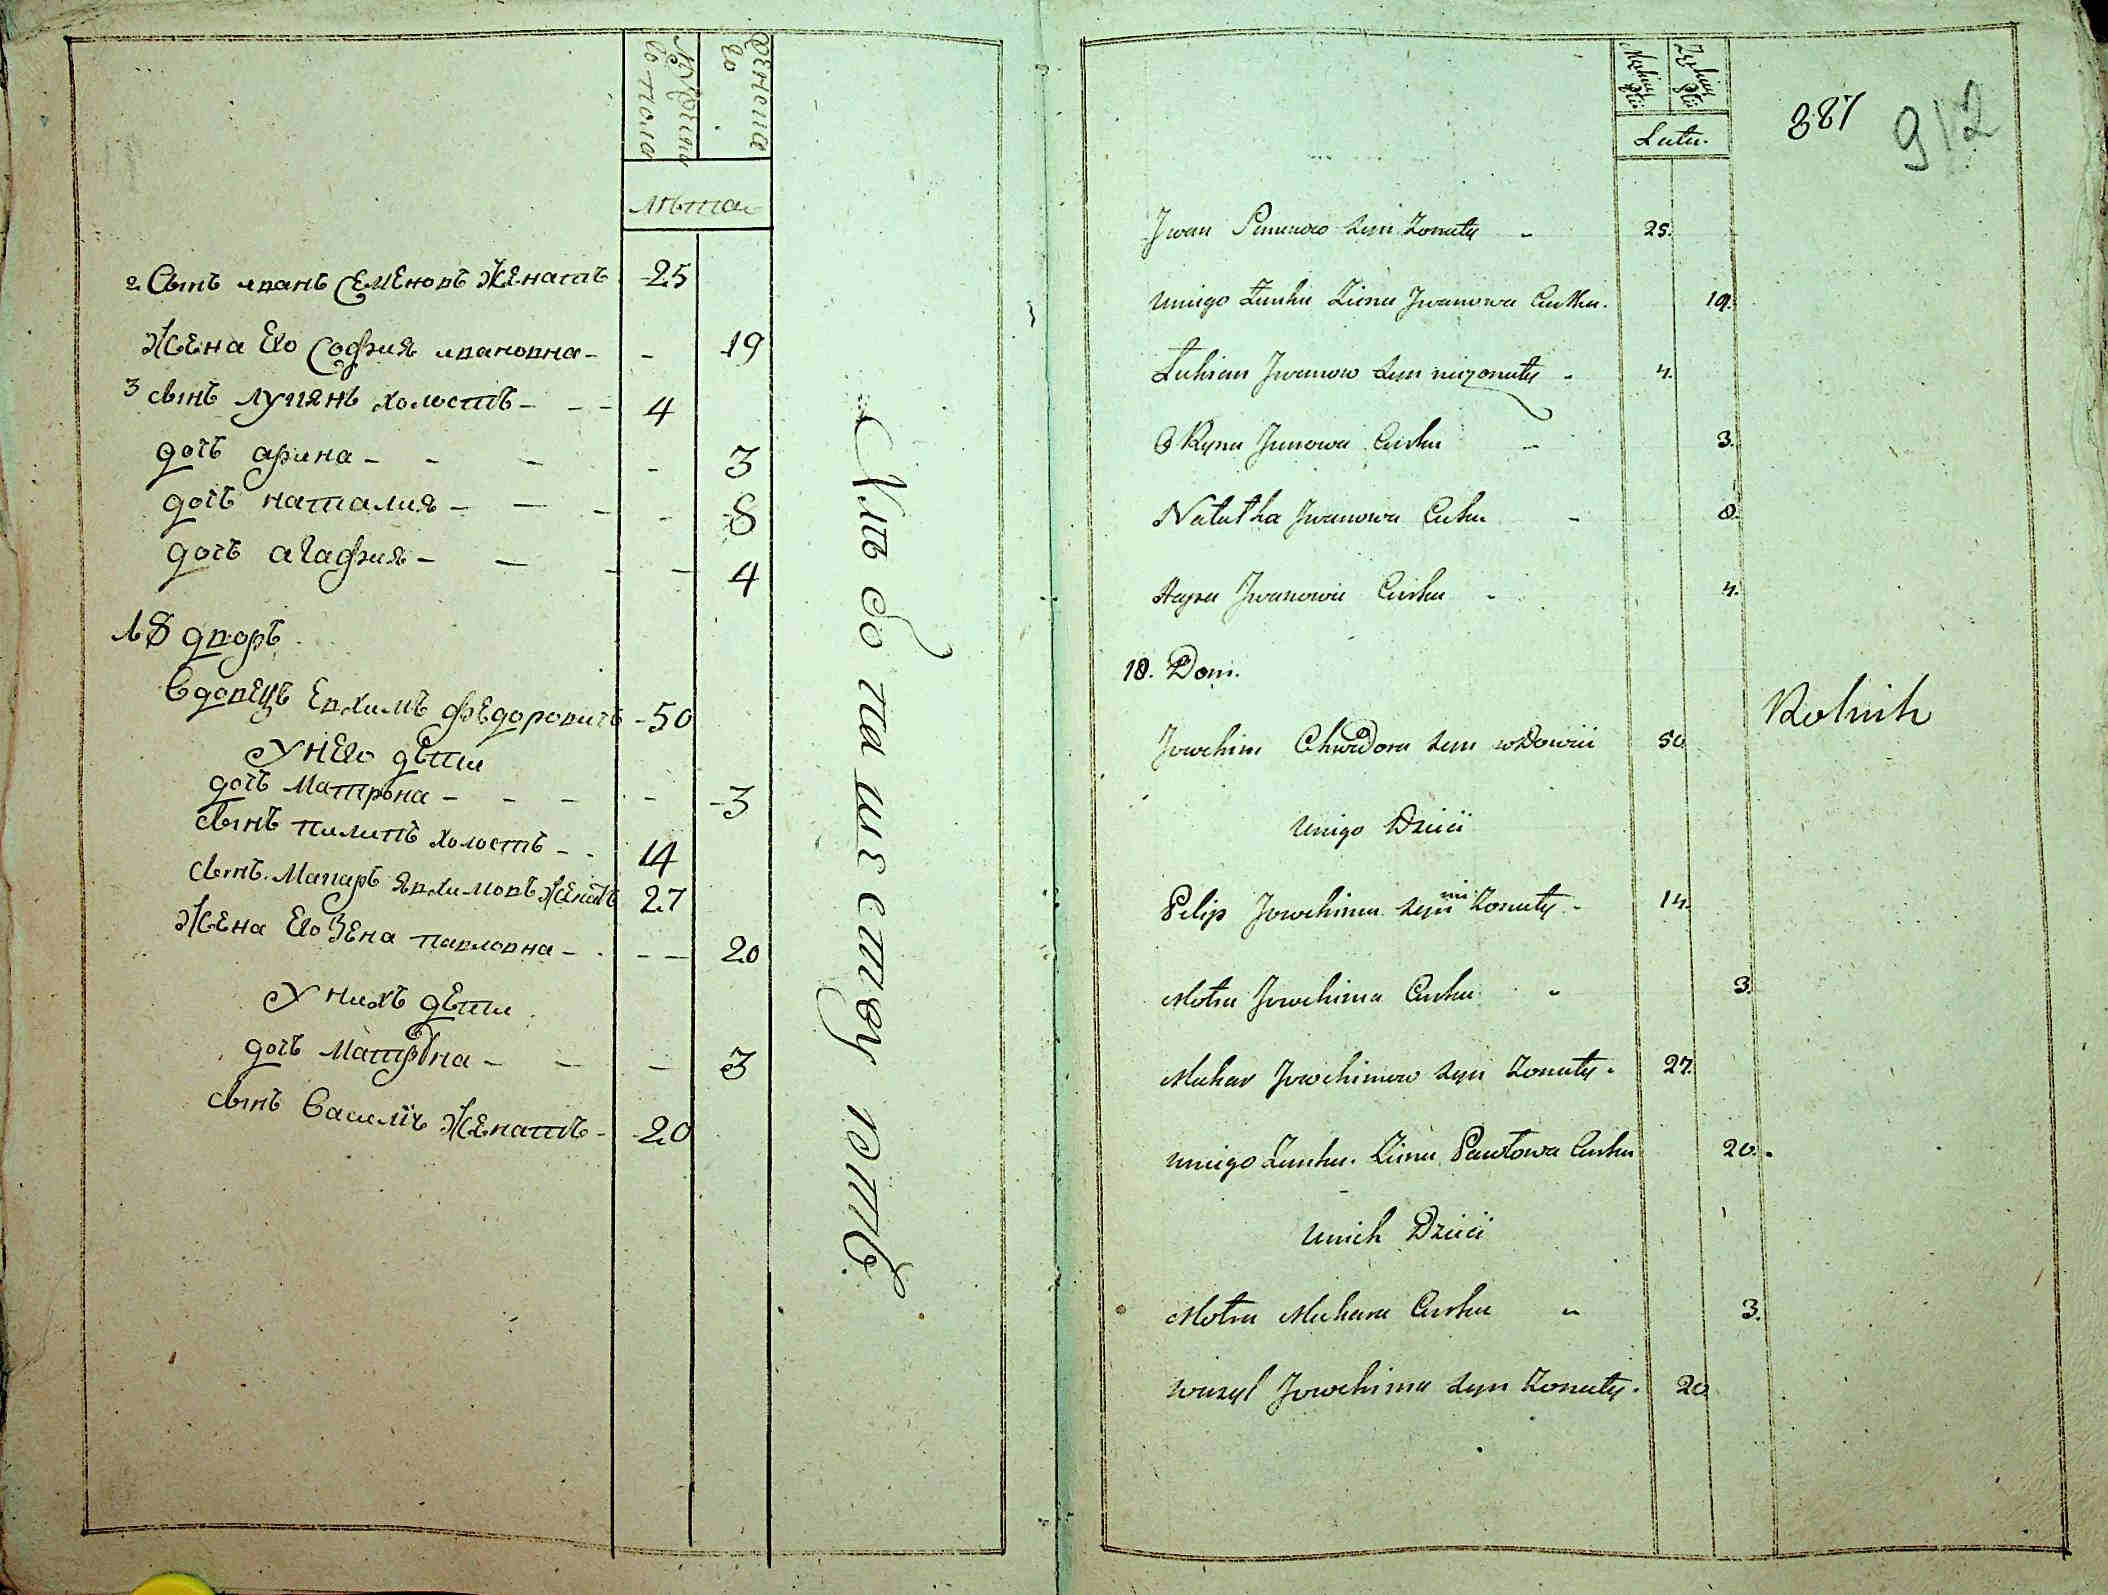 мужеска
го пола
женска
го
лѣта
2 Сынъ иванъ Семеновъ Женатъ 25
Жена Его София ивановна - - 19
3 сынъ лукянъ холостъ - - - 4
дочь арина - - - - 3
дочь наталия - - - - 8
дочь агафия - - - - 4
18 дворъ
Вдовецъ Евхимъ Федоровичъ - 50
У нЕго дѣти
дочь Матрона - - - - 3
сынъ пилипъ холостъ - - 14
сынъ Макаръ Явхимовъ Женатъ 27
Жена Его Зена павловна - - - 20
У нихъ дѣти
дочь Матрона - - - 3
сынъ Василий Женатъ - 20
Хлѣбопашеству
887
912
Latu.
Jwan Siemionow syn Żonaty - 25.
Uniego Żonka Zienia Jwanowa Curka. 19.
Łukian Jwanow syn nieżonaty - 4.
Jwanowa Curka - 3.
Natałka Jwanowa Curka - 8.
Hapka Jwanowa Curka - 4.
18. Dom.
Jowchim Chwedora syn wdowiec 50
Rolnik
Uniego Dzieci
Pilip Jowchima syn nie Żonaty - 14.
Motra Jowchima Curka - 3.
Makar Jowchimow syn Żonaty - 27.
Uniego Żonka. Zienia Pawłowa Curka 20.
Unich Dzieci
Motra Makara Curka - 3.
Wasyl Jowchima syn Żonaty. 20